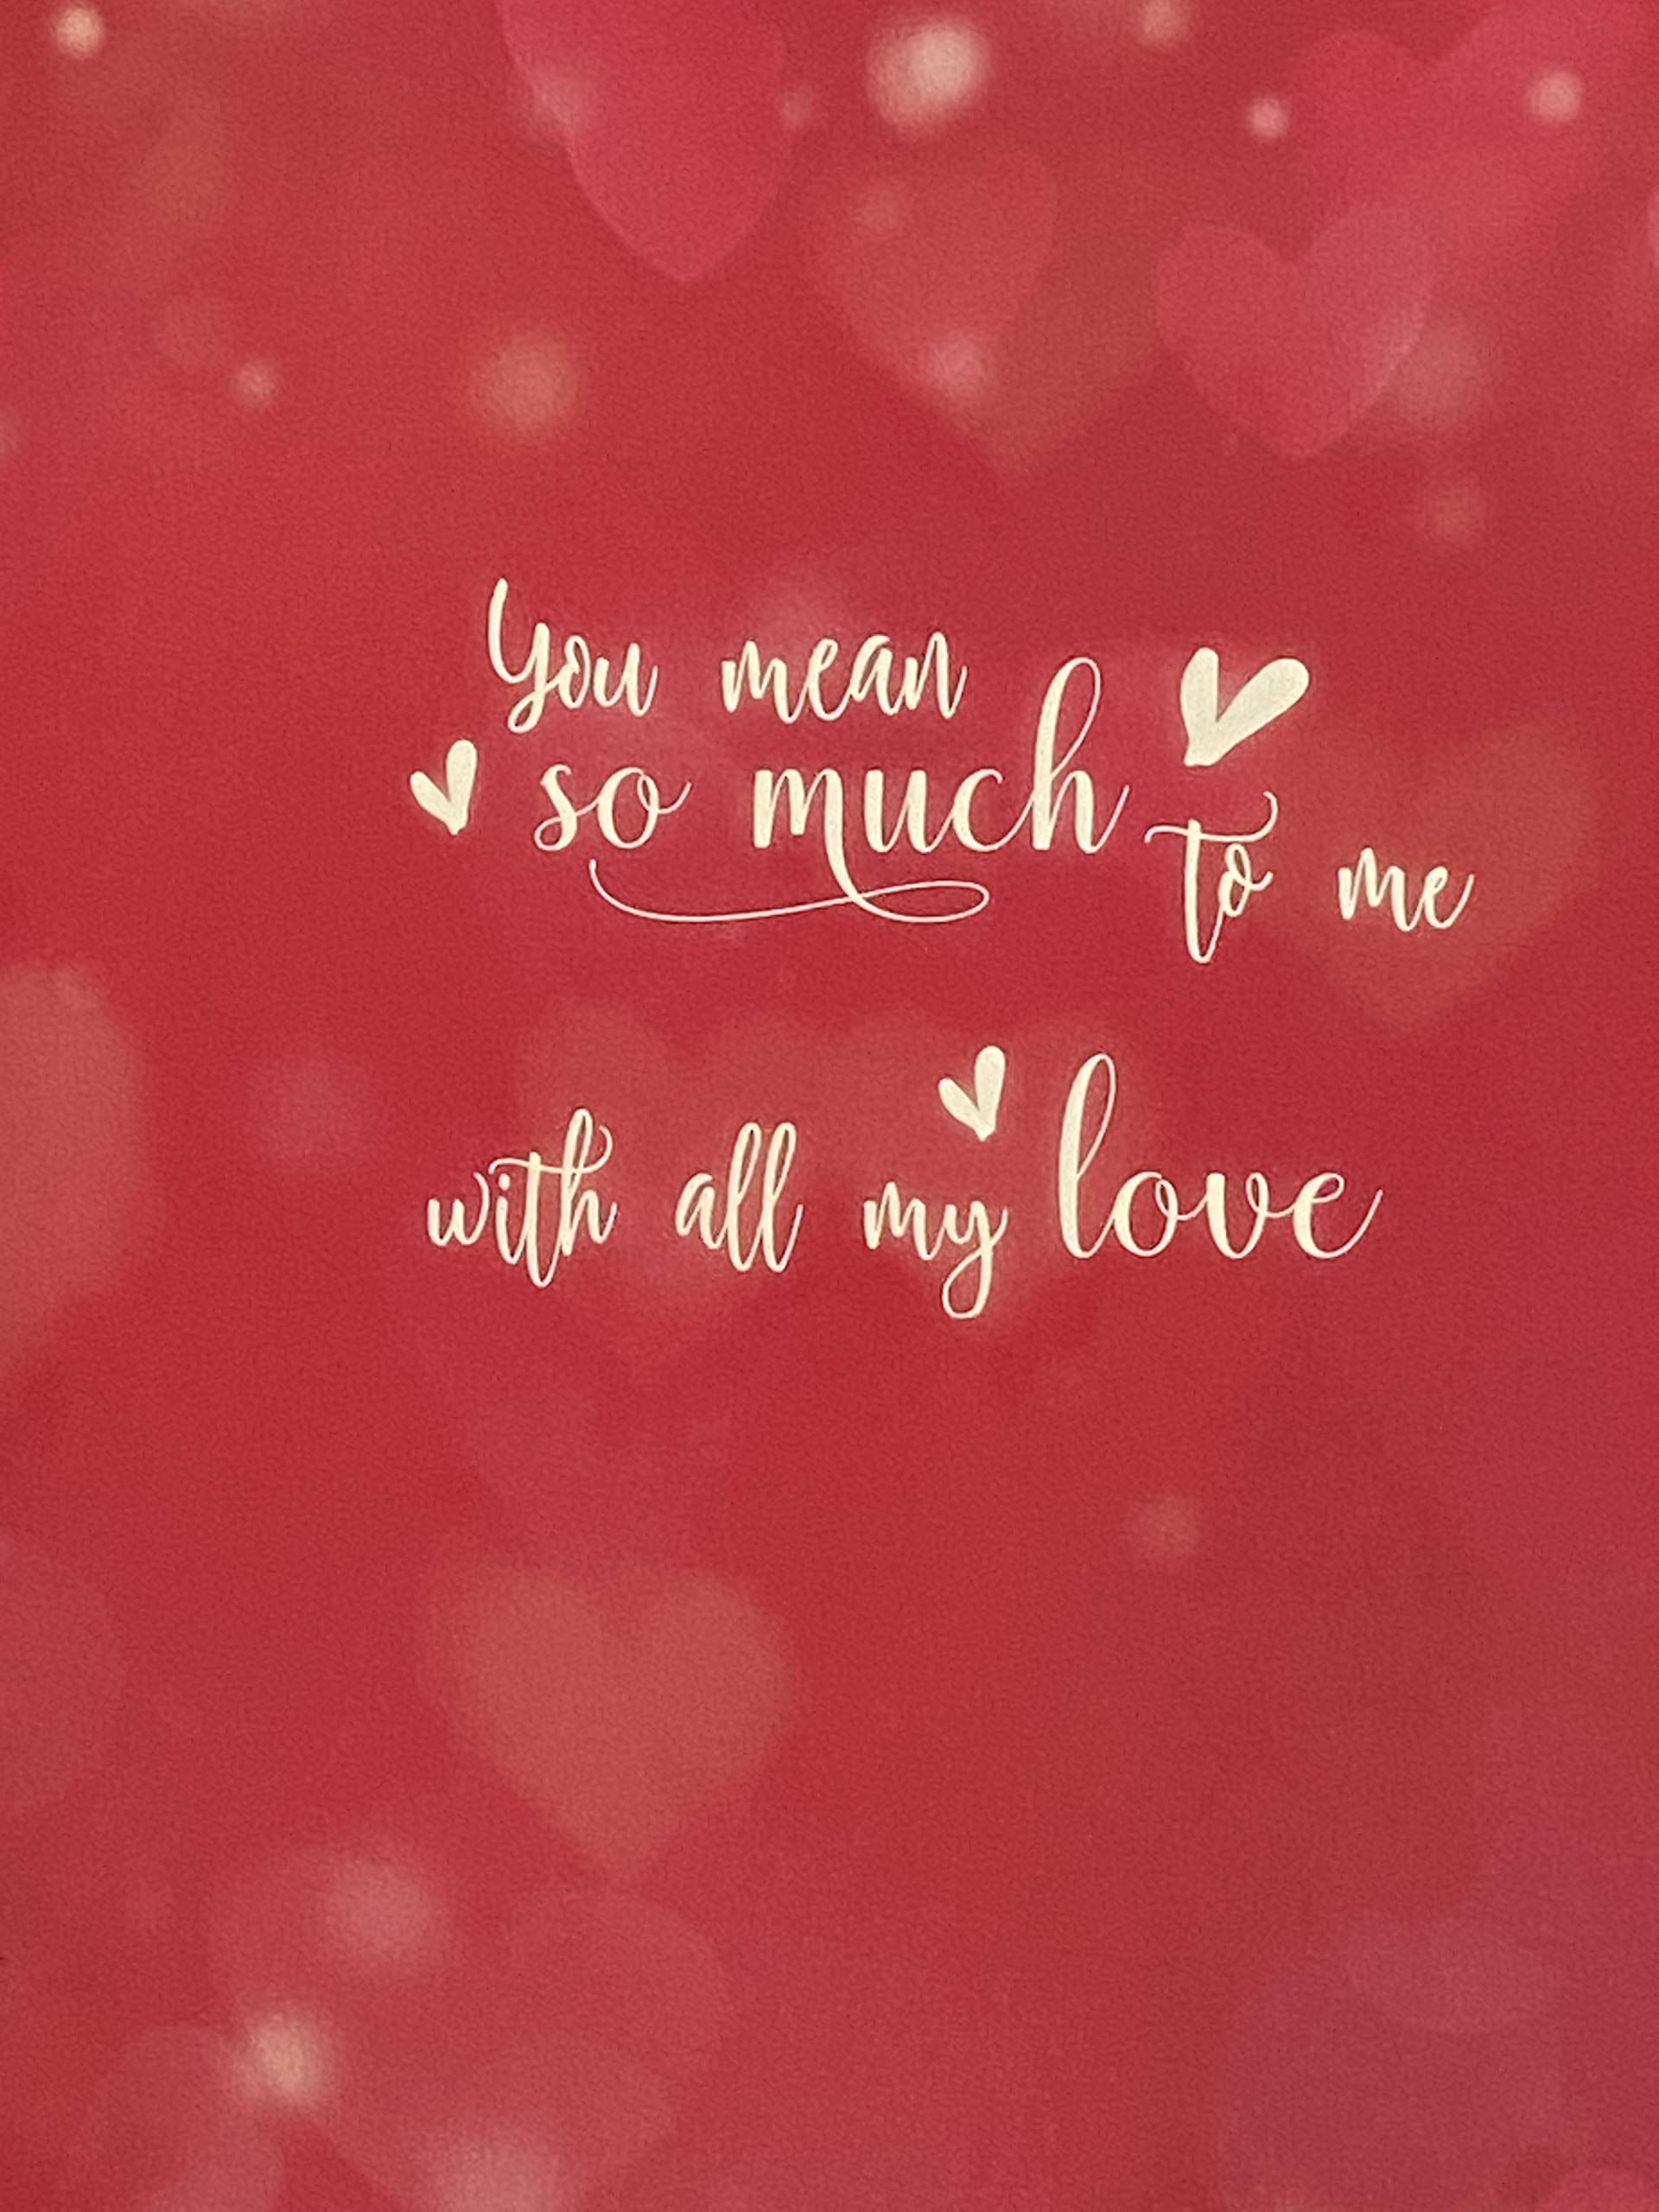 You mean
so much
to me
with all my love